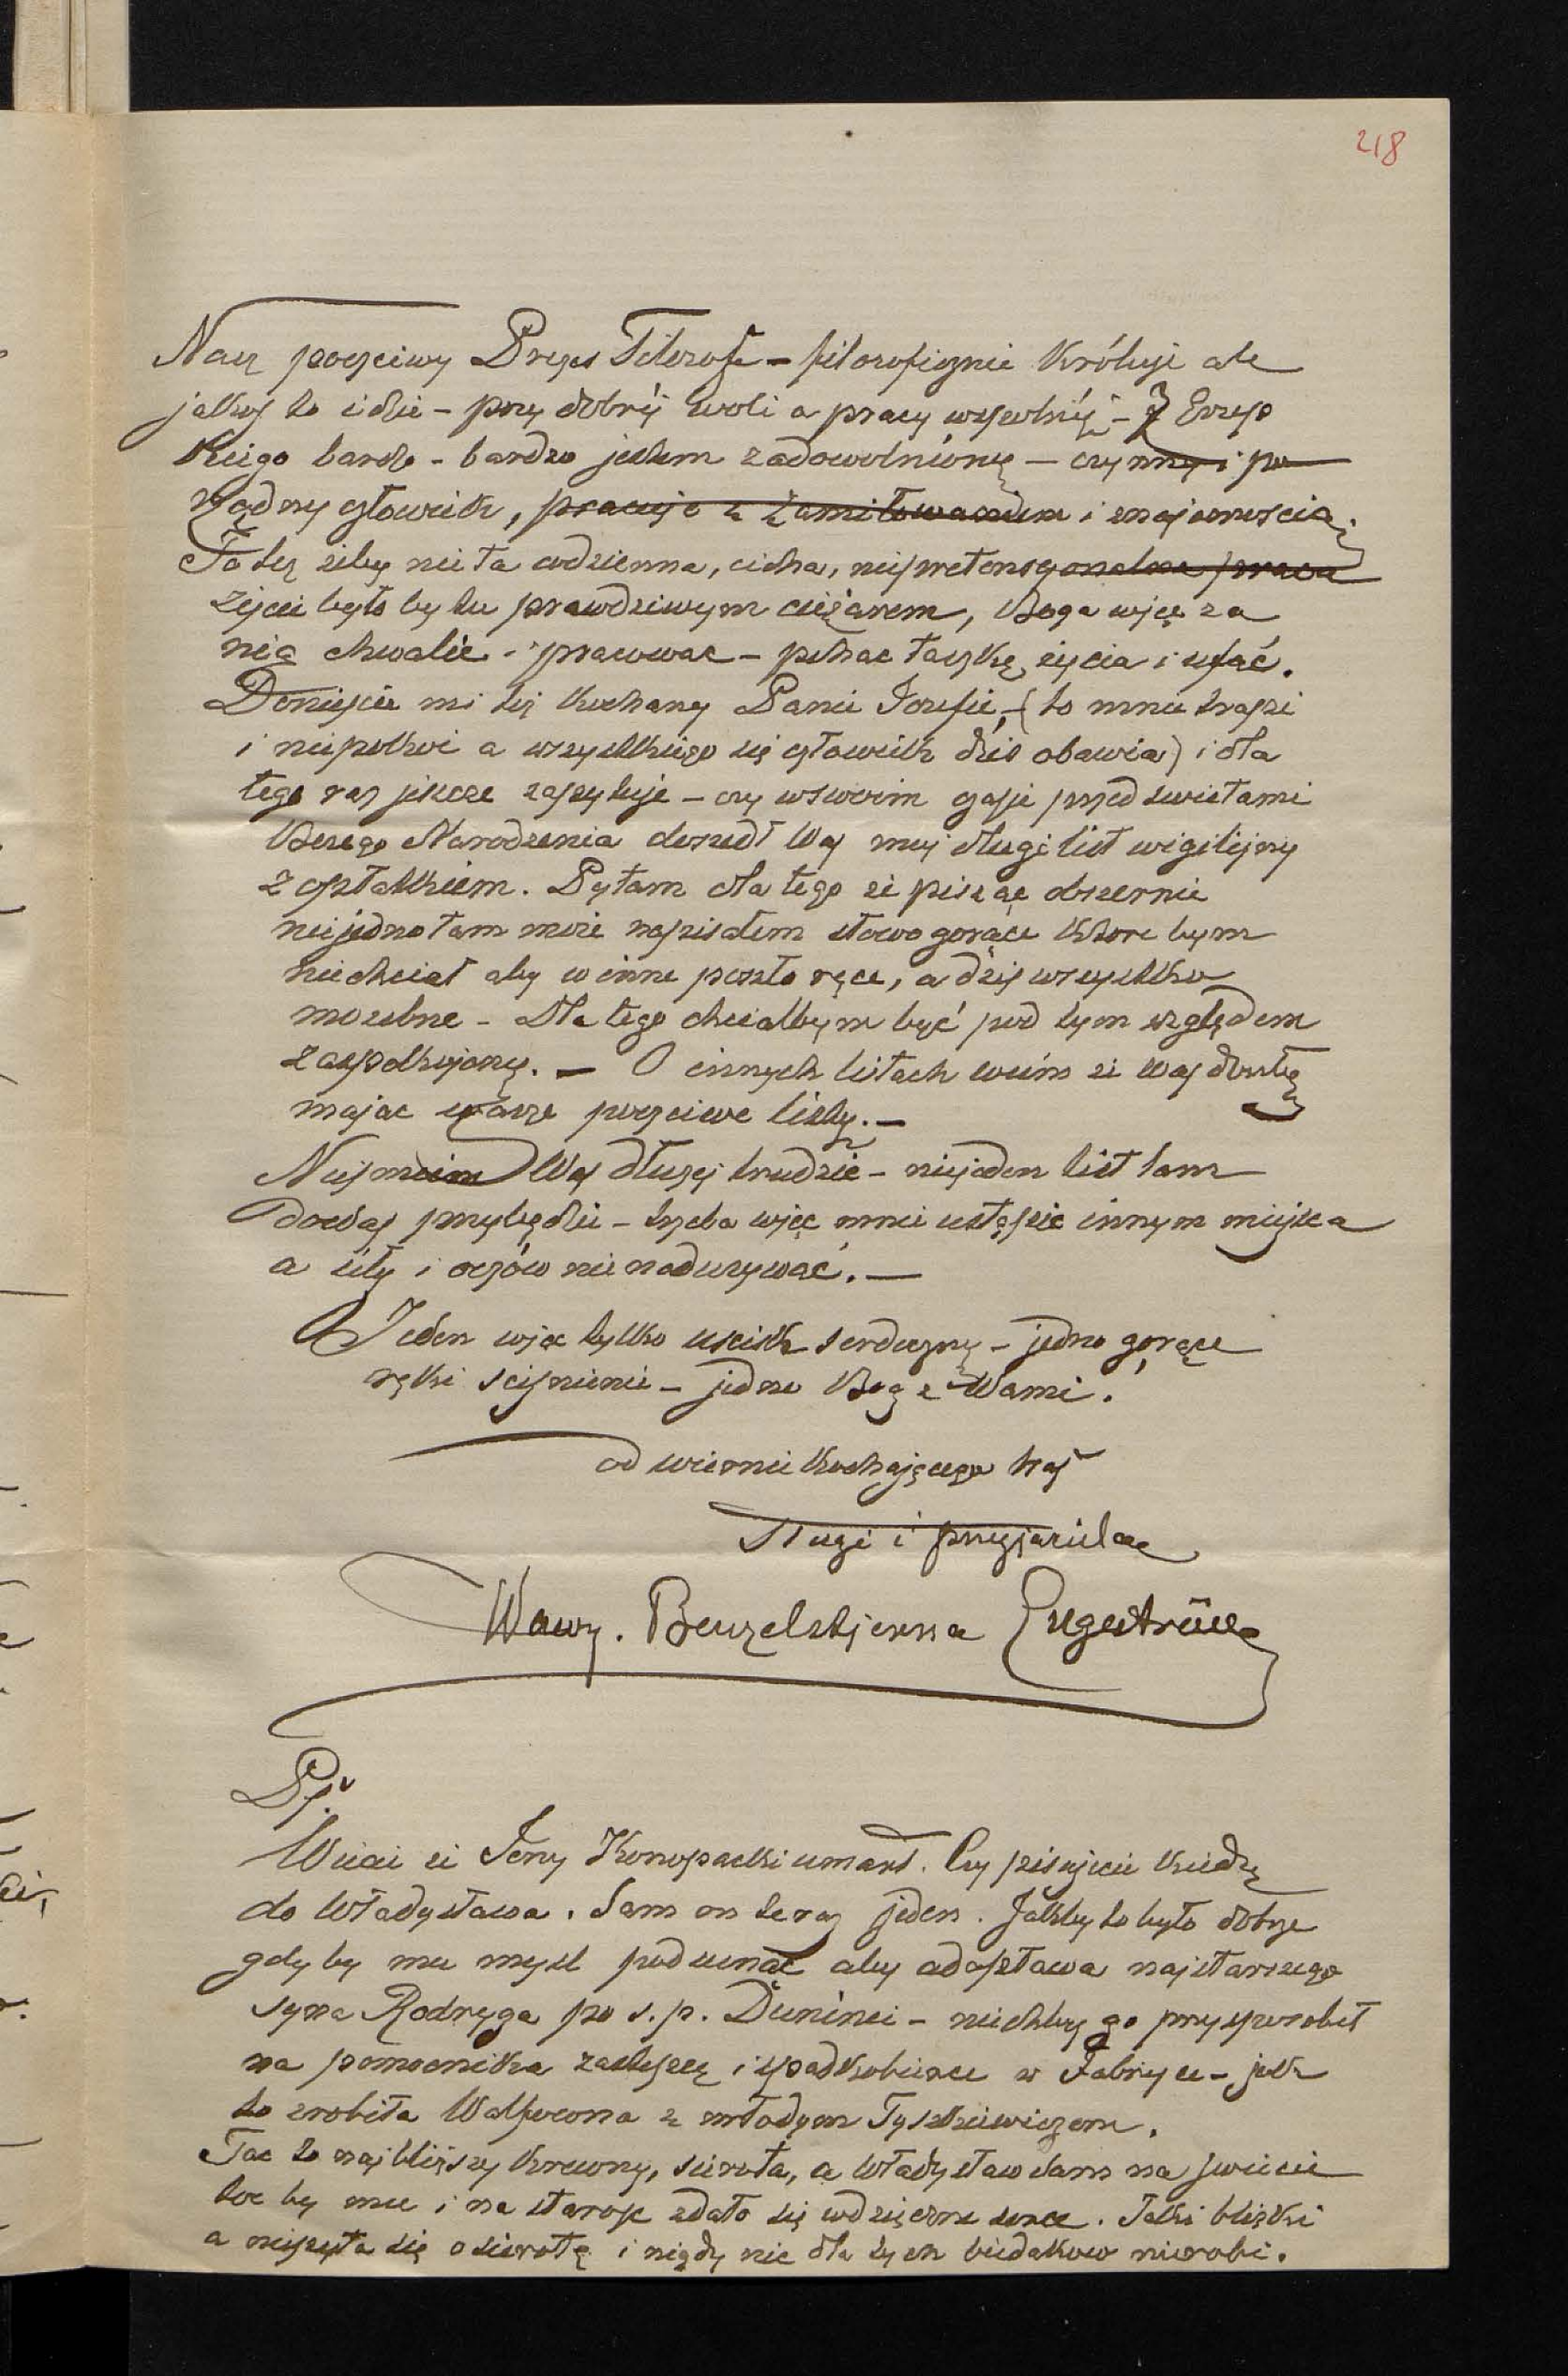 218
Nasz poczciwy Prezes Filozof – filozoficznie króluje ale
jakoś to idzie – przy dobrej woli a pracy wspolnéj – Z
bardzo – bardzo jestem zadowolniony – czynny i po
rządny człowiek, pracuje z zamiłowaniem i znajomoscią.
To też żeby nie ta codzienna, cicha, niepretensyonalna praca
życie było by tu prawdziwym ciężarem, Boga więc za
nią chwalić – pracowac – pchac taczkę życia i ufać.
Donieście mi też Kochany Panie Jozefie, – (to mnie trapi
i niepokoi a wszystkiego się człowiek dzis obawia) i dla
tego raz jeszcze zapytuje – czy wswoim czasie przed swietami
Bożego Narodzenia doszedł Was muj długi list wigilijny
z opłatkiem. Pytam dla tego że pisząc obszernie
niejedno tam może napisałem słowo gorące ktore bym
niechciał aby w inne poszło ręce, a dziś wszystko
możebne – Dla tego chciałbym być pod tym względem
zaspokojony. – O innych listach wiem że Was doszły
mając wasze poczciwe listy. –
Was dłużej trudzić – niejeden list tam
do Was przybędzie – trzeba więc mnie ustąpić innym miejsca
a siły i oczów nie nadużywać. –
Jeden więc tylko uscisk serdeczny – jedno gorące
ręki scisnienie – jedne Bog z Wami!
od wiernie Kochającego Was
Sługi i przyjaciela
Wawrz. Benzelstjerna Engeström
Ps.
Wiecie że Jerzy Konopacki umarł. Czy pisujecie kiedy
do Władysława. Sam on teraz jeden. Jakby to było dobrze
gdyby mu mysl podsunąć aby adoptował najstarszego
syna Rodryga po s. p. Duninei – niechby go przysposobił
na pomocnika zastępcę i spadkobierce w Fabryce – jak
to zrobiła z młodym Tyszkiewiczem.
Toc to najbliższy krewny, sierota, a Władysław sam na swiecie
toc by mu i na starosc zdało się wdzięczne serce. Taki bliski
a niepyta się o sierotę i nigdy nic dla tych biedakow nierobi.